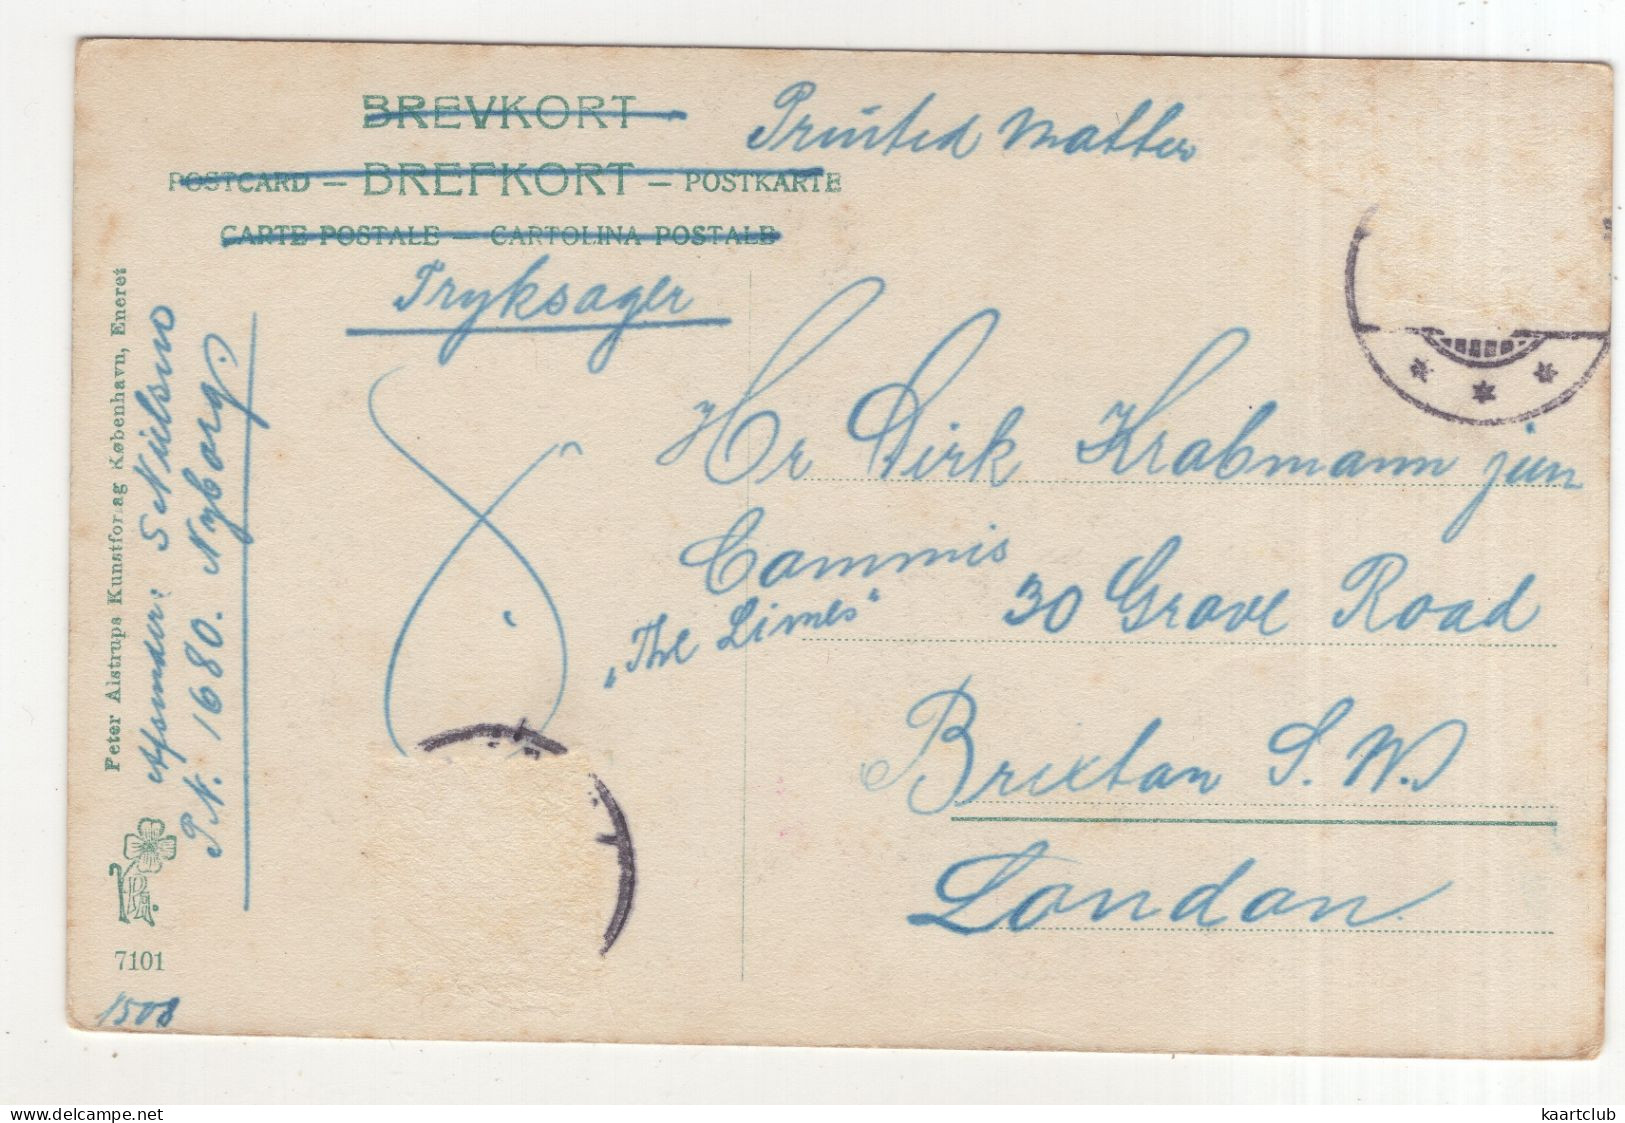 BREVKORT
Printed Matter
POSTCARD — BREFKORT — POSTKARTE
CARTE POSTALE — CARTOLINA POSTALE
Tryksager
Hr Dirk Krabmann jun
Commis
"The Limes" 30 Grove Road
Brixton S. W.
London
Peter Alstrups Kunstforlag København, Eneret
Afsender: S Nielsen
P N. 1680. Nyborg.
7101
1508
www.delcampe.net
kaartclub